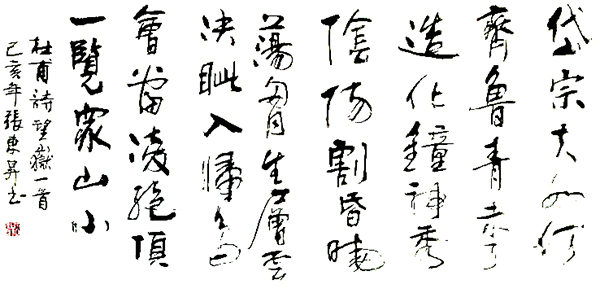 岱宗夫如何
齊魯青未了
造化鐘神秀
陰陽割昏曉
蕩胷生層雲
決眦入歸鳥
會當凌絕頂
一覽眾山小
杜甫詩望嶽一首
己亥年張東昇書